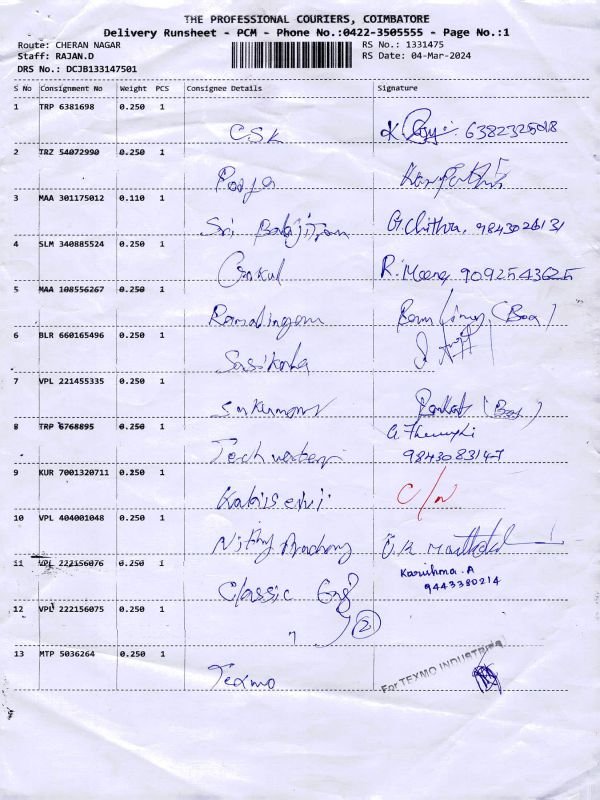 THE PROFESSIONAL COURIERS, COIMBATORE
Delivery Runsheet - PCM - Phone No.:0422-3505555 - Page No.:1
Route: CHERAN NAGAR RS No.: 1331475
Staff: RAJAN.D RS Date: 04-Mar-2024
DRS No.: DCJB133147501
S No Consignment No Weight PCS Consignee Details Signature
1 TRP 6381698 0.250 1
CSK 6382325018
2 TRZ 54072990 0.250 1
3 MAA 301175012 0.110 1
Sri G.Chithra, 9843026131
4 SLM 340885524 0.250 1
Gokul R. Meena 9092543625
5 MAA 108556267 0.250 1
Ramalingam (Boa)
6 BLR 660165496 0.250 1
Sasikala
7 VPL 221455335 0.250 1
8 TRP 6768895 0.250 1
9843083147
9 KUR 7001320711 0.250 1
C/N
10 VPL 404001048 0.250 1
11 VPL 222156076 0.250 1
Karishma.A
9443380214
Classic Eng
12 VPL 222156075 0.250 1
" 2
13 MTP 5036264 0.250 1
For TEXMO INDUSTRIES
Texmo